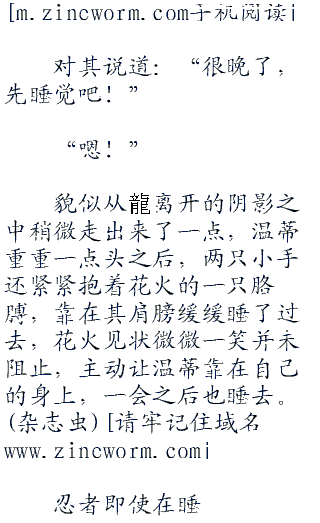 [m.zincworm.com手机阅读i
对其说道：“很晚了，
先睡觉吧！”
“嗯！”
貌似从龍离开的阴影之
中稍微走出来了一点，温蒂
重重一点头之后，两只小手
还紧紧抱着花火的一只胳
膊，靠在其肩膀缓缓睡了过
去，花火见状微微一笑并未
阻止，主动让温蒂靠在自己
的身上，一会之后也睡去。
(杂志虫)[请牢记住域名
www.zincworm.comi
忍者即使在睡